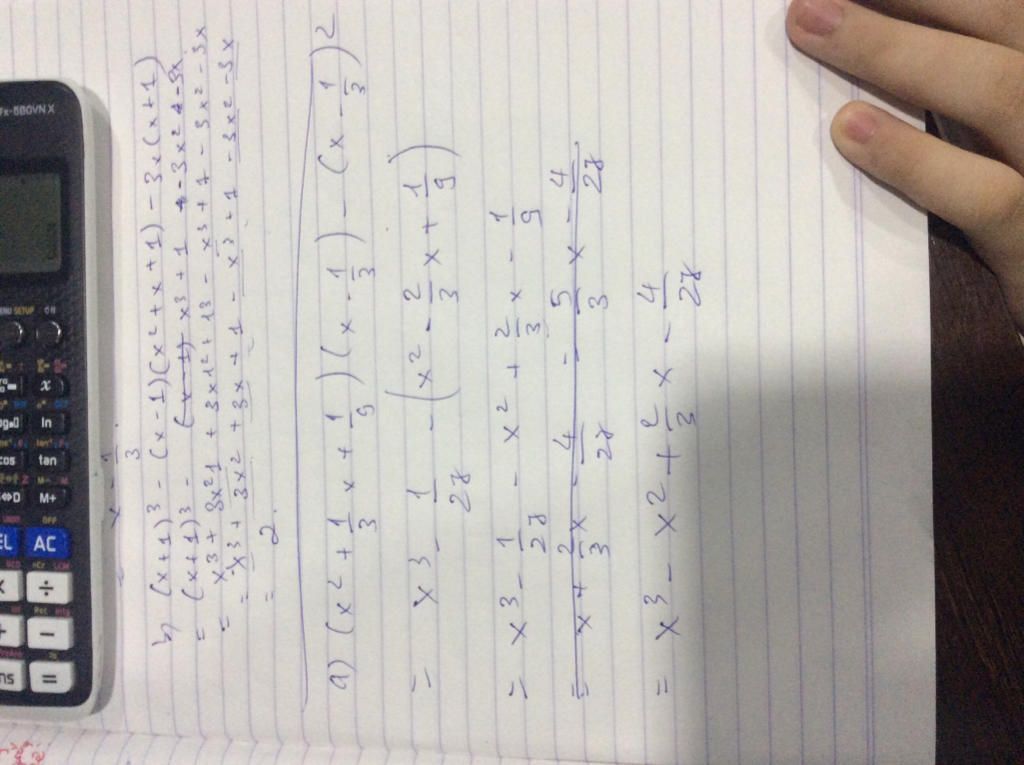 x - 1/3
b) (x+1)³ - (x-1)(x²+x+1) - 3x(x+1)
= (x+1)³ - x³ + 1 - 3x² - 3x
= x³ + 3x²1 + 3x1² + 13 - x³ + 1 - 3x² - 3x
= x³ + 3x² + 3x + 1 - x³ + 1 - 3x² - 3x
= 2
a) (x² + 1/3 x + 1/9) (x - 1/3) - (x - 1/3)²
= x³ - 1/27 - (x² - 2/3 x + 1/9)
= x³ - 1/27 - x² + 2/3 x - 1/9
= x + 2/3 x - 4/27 = - 5/3 x - 4/27
= x³ - x² + 2/3 x - 4/27
fx-580VN X
MENU SETUP ON
x
ln
cos tan
S⇔D M+
DEL AC
× ÷
+ −
Ans =